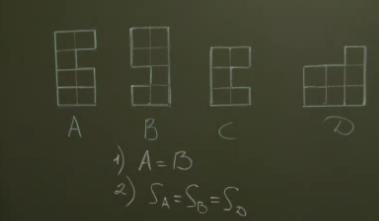 A B C D
1) A = B
2) S_A = S_B = S_D